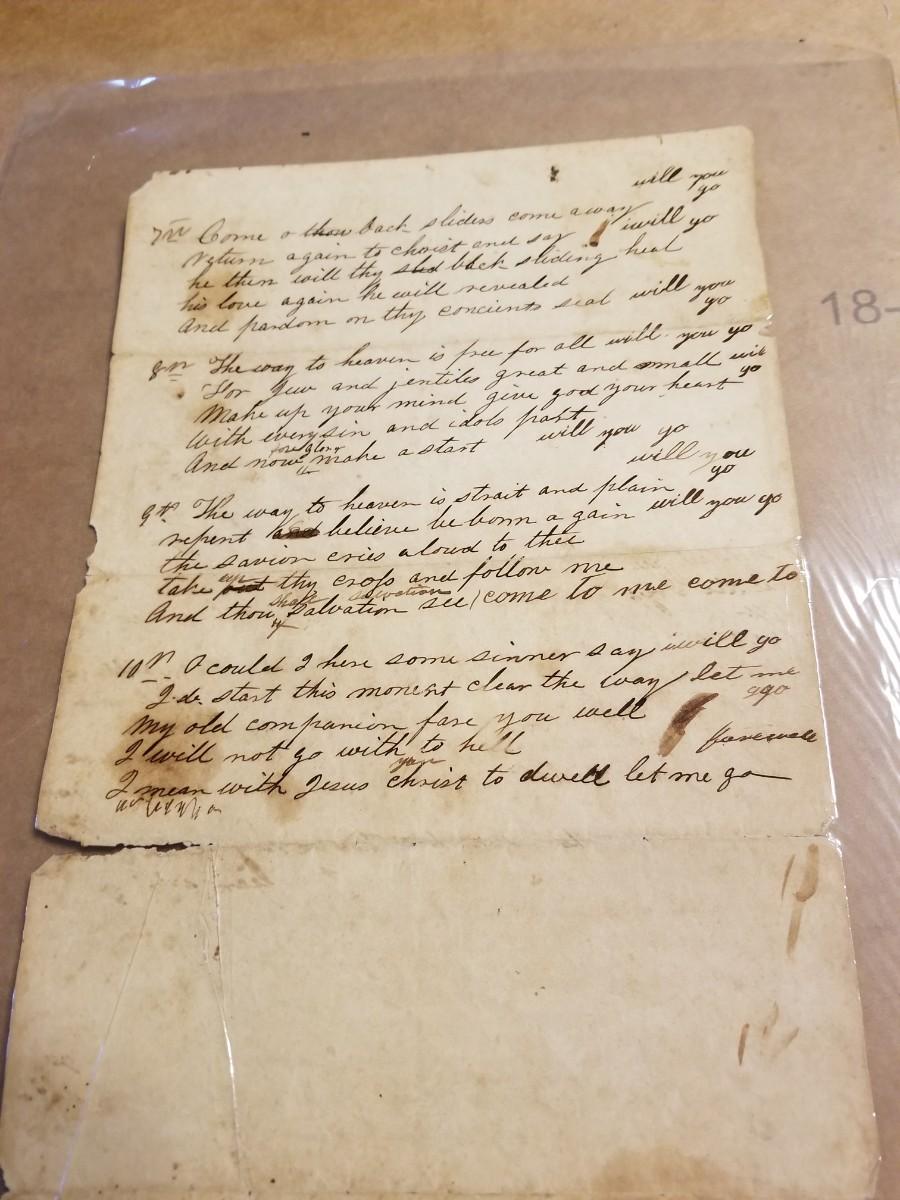 will you
go
7th Come o thou back sliders come away
return again to christ and say iwill go
he then will thy back sliding heal
his love again he will revealed
And pardom on thy concients seal will you
go
8th The way to heaven is free for all will you go
For Juw and jentiles great and small will
go
Make up your mind give god your heart
with every sin and idols part
for glory
And now make a start will you go
will you
go
9th. The way to heaven is strait and plain
repent and believe be born a gain will you go
the savior cries aloud to thee
up
take thy cross and follow me
shalt salvation
And thou Salvation see) come to me come to
10th. O could I here some sinner say iwill go
I de start this monent clear the way let me
go
My old companion fare you well
farewell
I will not go with to hell
you
I mean with Jesus christ to dwell let me go
18-